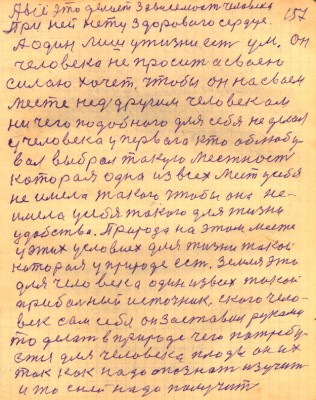 А всё это делает Зависимость человека 157
При ней нету здорового сердце.
А один лиш у жизни ест ум. Он
человека не просит а своею
силаю хочет, чтобы он на своем
месте над другим человекам
ни чего подобного для себя не делал
у человека у первага кто облюбу
вал выбрал такую местност
которая одна из всех мест у себя
не имела такого чтобы она не-
имела у себя такого для жизни
удобства. Природа на этом месте
у этих условиях для жизни такой
которая у природе ест. Земля эта
для человека один из всех такой
прибыльный источник, с кого чело-
век сам себя он заставил руками
то делат в природе чего потребу-
ется для человека плоды он их
так как надо опознат изучит
и то с ней надо получит